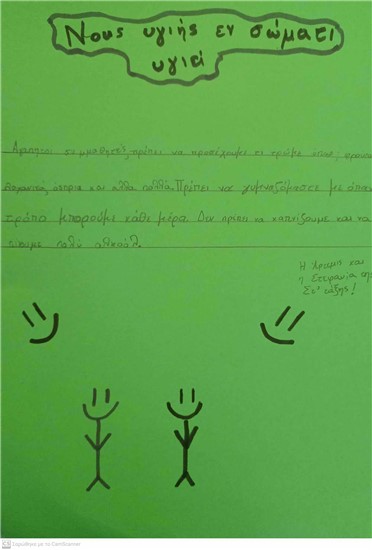 Νους υγιής εν σώματι
υγιεί
Αγαπητοί συμμαθητές πρέπει να προσέχουμε τι τρώμε όπως, φρούτα
όσπρια και άλλα πολλά. Πρέπει να γυμναζόμαστε με όποιον
τρόπο μπορούμε κάθε μέρα. Δεν πρέπει να καπνίζουμε και να
πίνουμε πολύ αλκοόλ.
Η Άρτεμις και
η Στεφανία της
Στ' τάξης!
CS Σαρώθηκε με το CamScanner